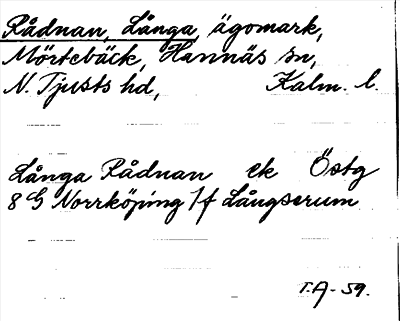 Rådnan, Långa, ägomark,
Mörtebäck, Hannäs sn,
N. Tjusts hd, Kalm. l.
Långa Rådnan ek Östg
8 G Norrköping 7f Långserum
T.A-59.